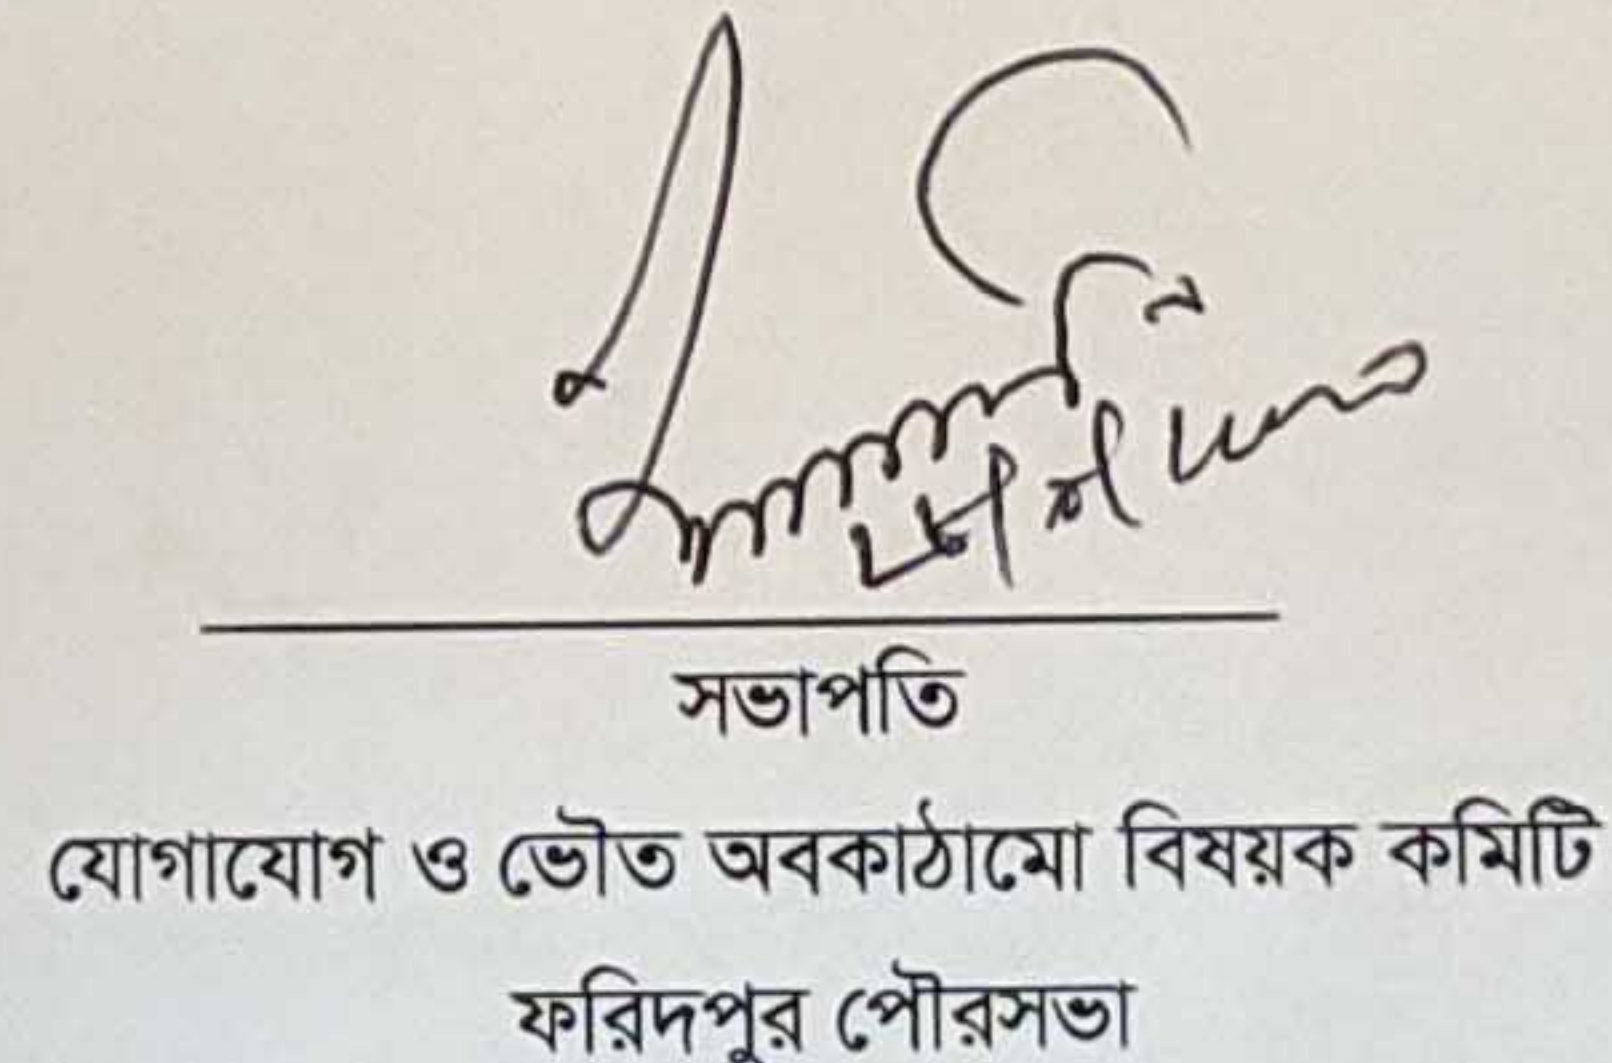 সভাপতি
যোগাযোগ ও ভৌত অবকাঠামো বিষয়ক কমিটি
ফরিদপুর পৌরসভা